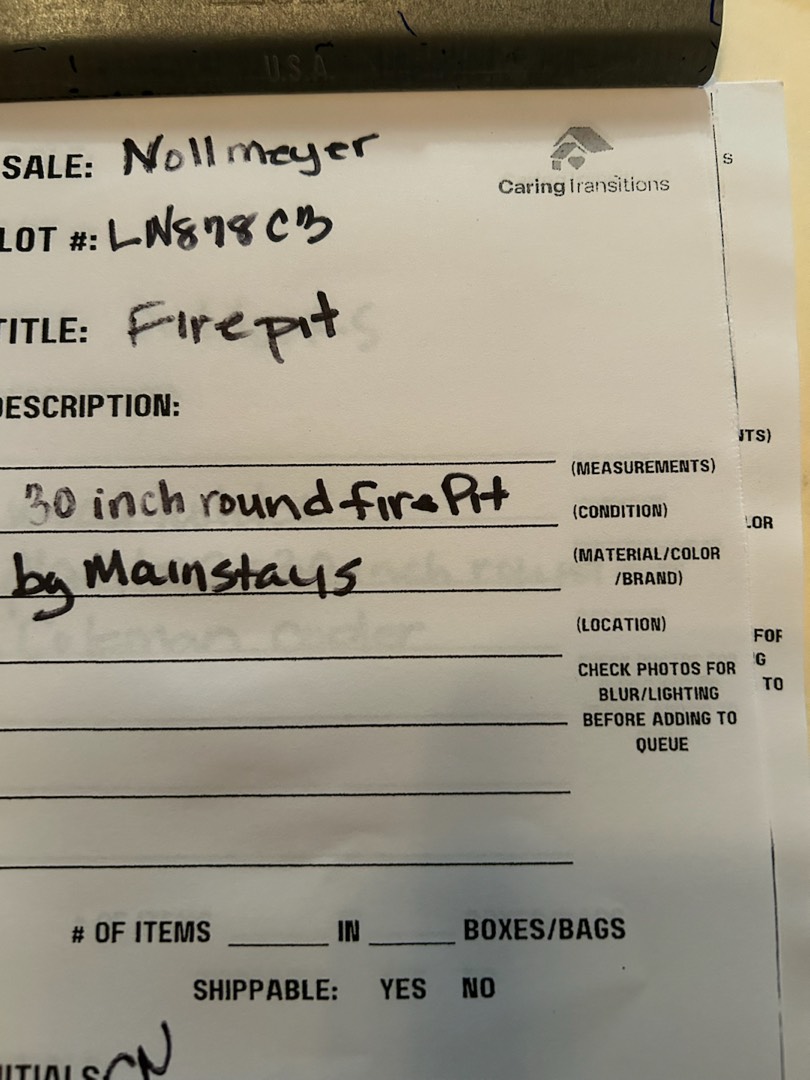 U.S.A.
SALE: Nollmeyer
Caring Transitions
S
LOT #: LN878CB
TITLE: Firepit
DESCRIPTION:
NTS)
(MEASUREMENTS)
30 inch round fire Pit
(CONDITION)
LOR
by Mainstays
(MATERIAL/COLOR
/BRAND)
(LOCATION)
FOR
CHECK PHOTOS FOR
G
BLUR/LIGHTING
TO
BEFORE ADDING TO
QUEUE
# OF ITEMS ______ IN ______ BOXES/BAGS
SHIPPABLE: YES NO
INITIALS CN